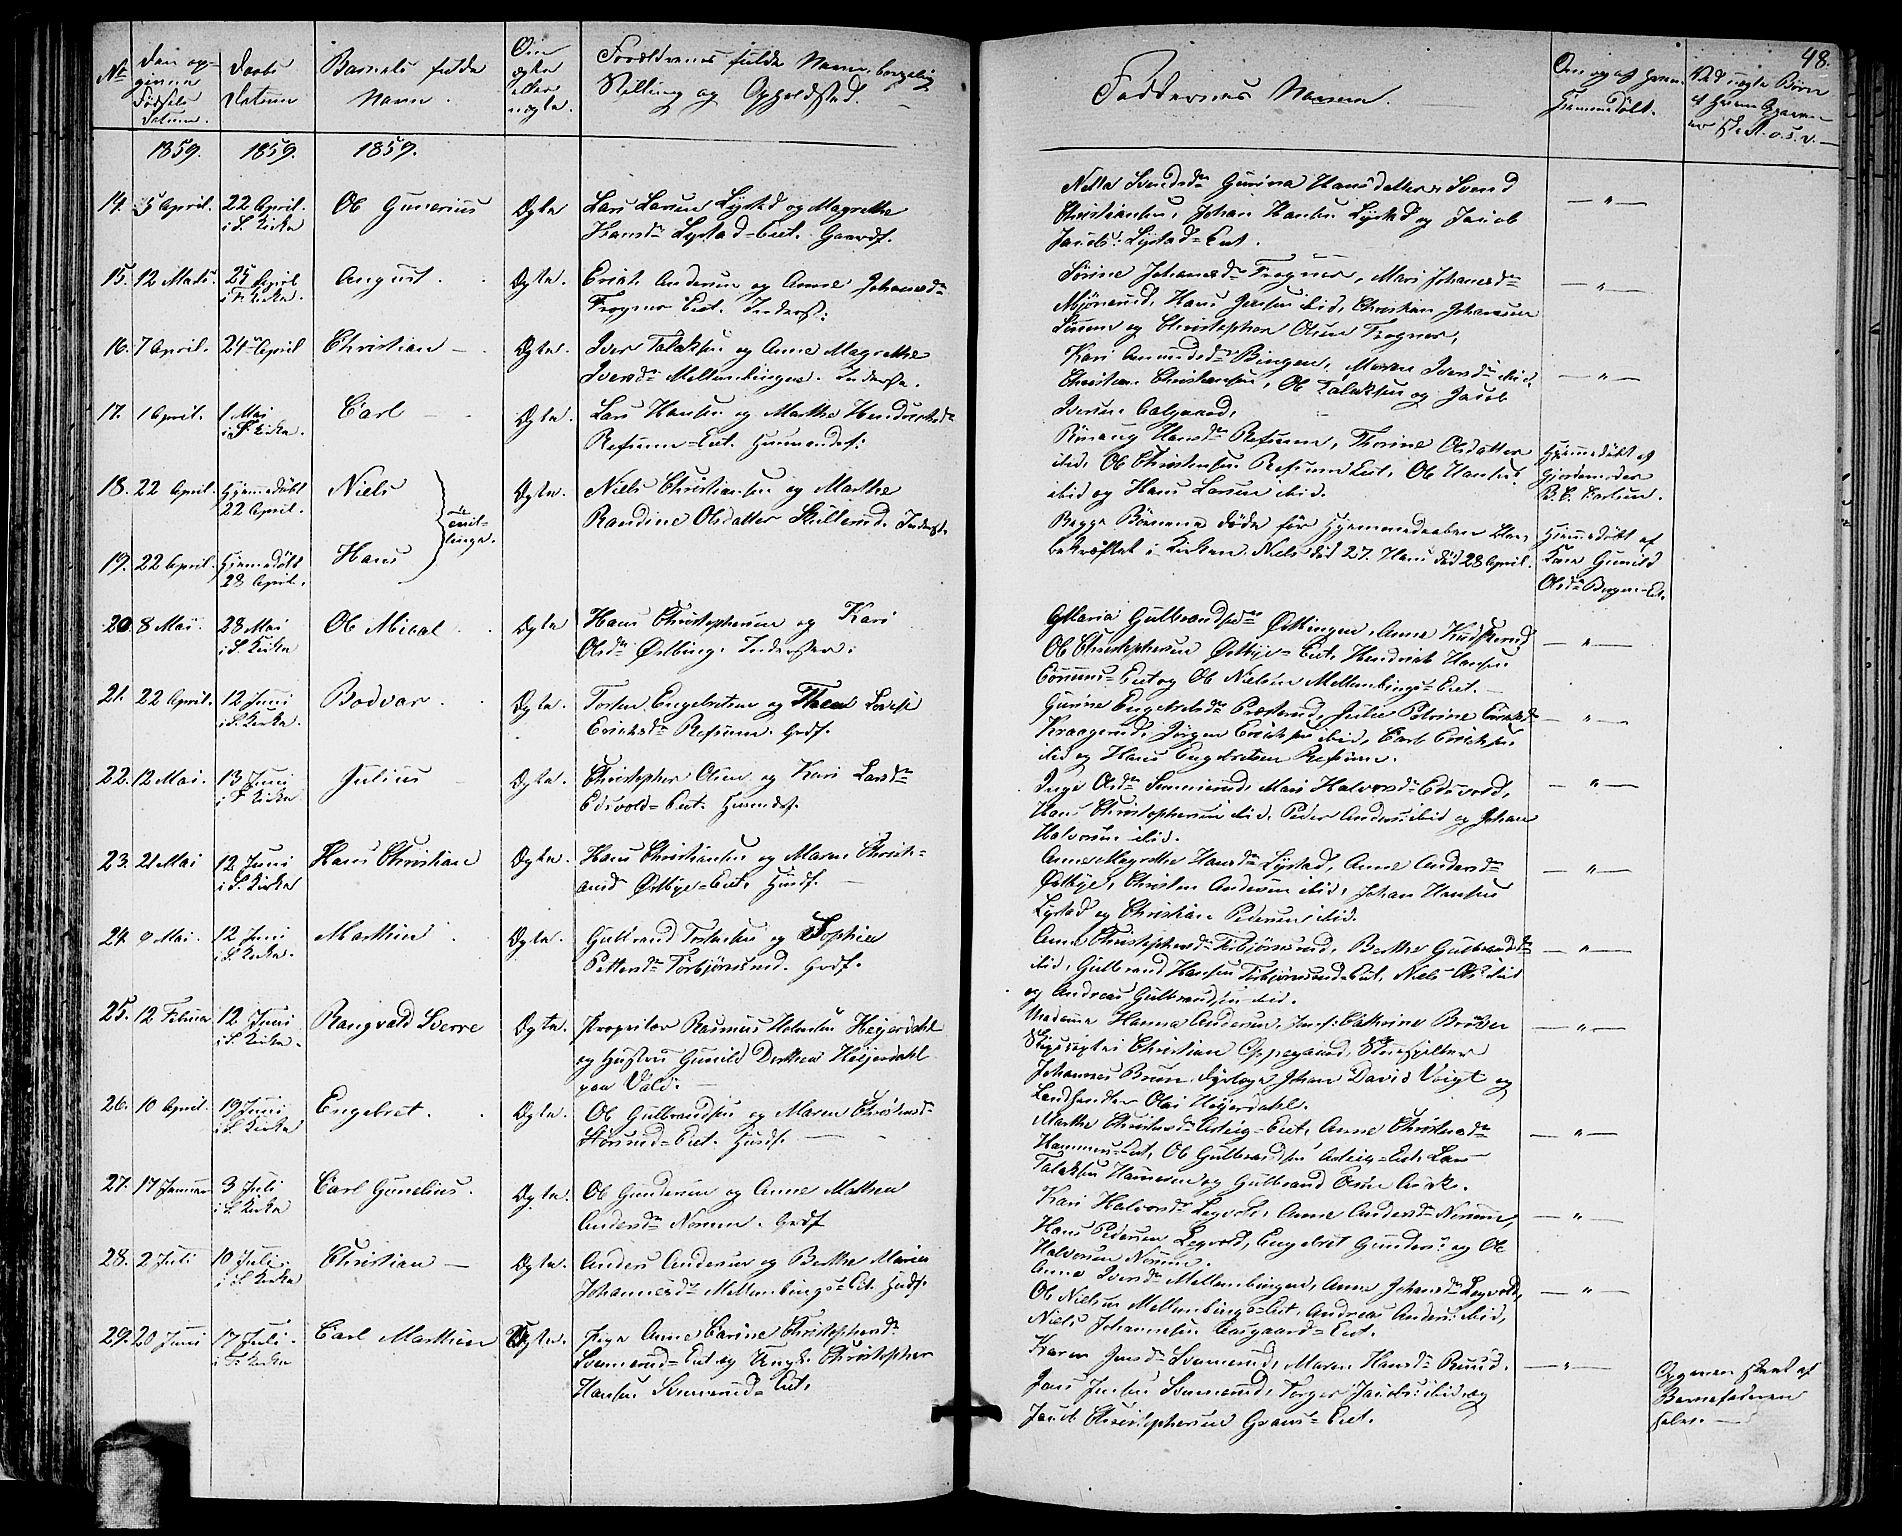 48.
No
Den op-
givne
Fødsels
Datum
Daabs
Datum
Barnets fulde
Navn.
Om
ægte
eller
uægte.
Forældrenes fulde Navn, borgelig
Stilling og Opholdsted.
Faddernes Navne.
Om og af hvem
hjemmedøbt.
Ved uægte Børn
af hvem Opgaven
er skeet o.s.v.
1859. 1859. 1859.
14. 5 April. 22 April. i S. Kirke Ole Gunerius Ægte
Lars Larsen Lystad og Magrethe
Hansdr Lystad-Eiet. Gaardf.
Nella Svendsdr Gurina Hansdatter, Svend
Christiansen, Johan Hansen Lystad og Jacob
Jacobs: Lystad-Eiet.
— " —
15. 12 Marts. 25 April i F. Kirke. August Ægte.
Erich Andersen og Anne Johansdr
Frogner Eiet. Inderst:
Sørine Johannesdr Frogner, Mari Johanesdr
Mjønerud, Hans Jensen ibid, Christian Johannesen
og Christopher Olsen Frogner,
— " —
16. 7 April. 24 April Christian Ægte.
Iver Talaksen og Anne Magrethe
Iversdr Mellembingen. Inderste.
Kari Amundsdr Bingen, Maren Iversdr ibid,
Christian Christiansen, Ole Talaksen og Jacob
Iversen
— " —
17. 1 April. 1 Mai i F. Kirke. Carl Ægte.
Lars Hansen og Marthe Hendriksdr
Refsum-Eiet. Huusmandsf:
Rønaug Hansdr Refsum, Thorine Olsdatter
ibid, Ole Christensen Refsum Eiet, Ole Hansen
ibid og Hans Larsen ibid.
18. 22 April. Hjemmedøbt 22 April. Niels Ægte.
Tvil-
linge.
Niels Christiansen og Marthe
Randine Olsdatter Skullerud. Inderst.
Hjemmedøbt af
Gjordemoder
Begge Børnene døde før Hjemmedaaben blev
bekræftet i Kirken. Niels død 27. Hans død 28 April.
19. 22 April. Hjemmedøbt 28 April. Hans
Hjemmedøbt af
Kone Gunild
Olsdr
20. 8 Mai. 28 Mai i S. Kirke Ole Mical Ægte
Hans Christophersen og Kari
Olsdr Østbing. Inderster:
Maria Gulbrandsdr Østbingen, Anne
Ole Christophersen Østbye-Eiet, Hendrich Hansen
og Ole Nielsen Mellembings-Eiet.
— " —
21. 22 April. 12 Juni i S. Kirke. Bodvar Ægte.
Torsten Engebretsen og Thea Lovise
Erichsdr Refsum. Grdf.
Gurine Engebretsdr Præsterud, Julie Petrine Erichsdr
Kraagerud, Jørgen Erichsen ibid, Carl Erichsen
ibid og Hans Engebretsen Refsum.
— " —
22. 12 Mai. 13 Juni i F. Kirke Julius Ægte.
Christopher Olsen og Kari Larsdr
Edsvold-Eiet. Huusmdsf.
Inge Olsdr Svennerud, Mari Halvorsdr Edsvold,
Hans Christophersen ibid, Peder Anders: ibid og Johan
Halvorsen ibid.
— " —
23. 21 Mai 12 Juni i S. Kirke Hans Christian Ægte.
Hans Christiansen og Maren Christi-
ansdr Østbye-Eiet, Husf.
Anne Magrethe Hansdr Lystad, Anne Andersdr
Østbye, Christen Andersen ibid, Johan Hansen
Lystad og Christian Pedersen ibid.
— " —
24. 9 Mai. 12 Juni i S. Kirke. Marthin Ægte.
Gulbrand Torstensen og Sophie
Pettersdr Torbjørnsrud. Grdf.
Anne Christophersdr Torbjørnsrud, Berthe Gulbrandsdr
ibid, Gulbrand Hansen Torbjørnsrud-Eiet, Niels Ols: ibid
og Andreas Gulbrandsen ibid.
— " —
25. 12 Februar 12 Juni i S. Kirke. Rangvald Sverre Ægte.
Propritær Rasmus Heyerdahl
og Hustru Gunild Dorthea Heyerdahl
paa Vald.
Madame Hanna Andersen, Jomf: Cathrine
Christian Oppegaard,
Johannes Bruun, Johan David Voigt og
Landhandler Olai Heyerdahl.
— " —
26. 10 April. 19 Juni i S. Kirke Engebret. Ægte.
Ole Gulbrandsen og Maren Christensd-
Eiet. Husf.
Marthe Christiansdr Eiet, Anne Christensdr
Hammer-Eiet, Ole Gulbrandsen Eiet Lars
Talaksen Hammeren og Gulbrand Olsen
— " —
27. 17 Januar 3 Juli i S. Kirke Carl Gunelius. Ægte.
Ole Gundersen og Anne Mathea
Andersdr Nomme. Grdf
Kari Halvorsdr Legvold, Anne Andersdr Nomme,
Hans Pedersen Legvold, Engebret Gunders: og Ole
Halvorsen Nomme.
— " —
28. 2 Juli 10 Juli. i S. Kirke Christian Ægte.
Anders Andersen og Berthe Marie
Johannesdr Mellembings-Eiet. Husf.
Anne Iversdr Mellembingen, Anne Johansdr Legvold,
Ole Nielsen Mellembings-Eiet, Andreas Anders: ibid,
Niels Johannesen Eiet.
— " —
29. 20 Juni 17 Juli. i F. Kirke Carl Marthin Ægte.
Pige Anne Carine Christophersdr
Svennerud-Eiet og Ungk: Christopher
Hansen Svennerud-Eiet.
Karen Jensdr Svennerud, Maren Hansdr Ruud,
Jens Jensen Svennerud, Torger Jacobs: ibid og
Jacob Christophersen Eiet.
— " —
Opgaven skeet af
Barnefaderen
selv.